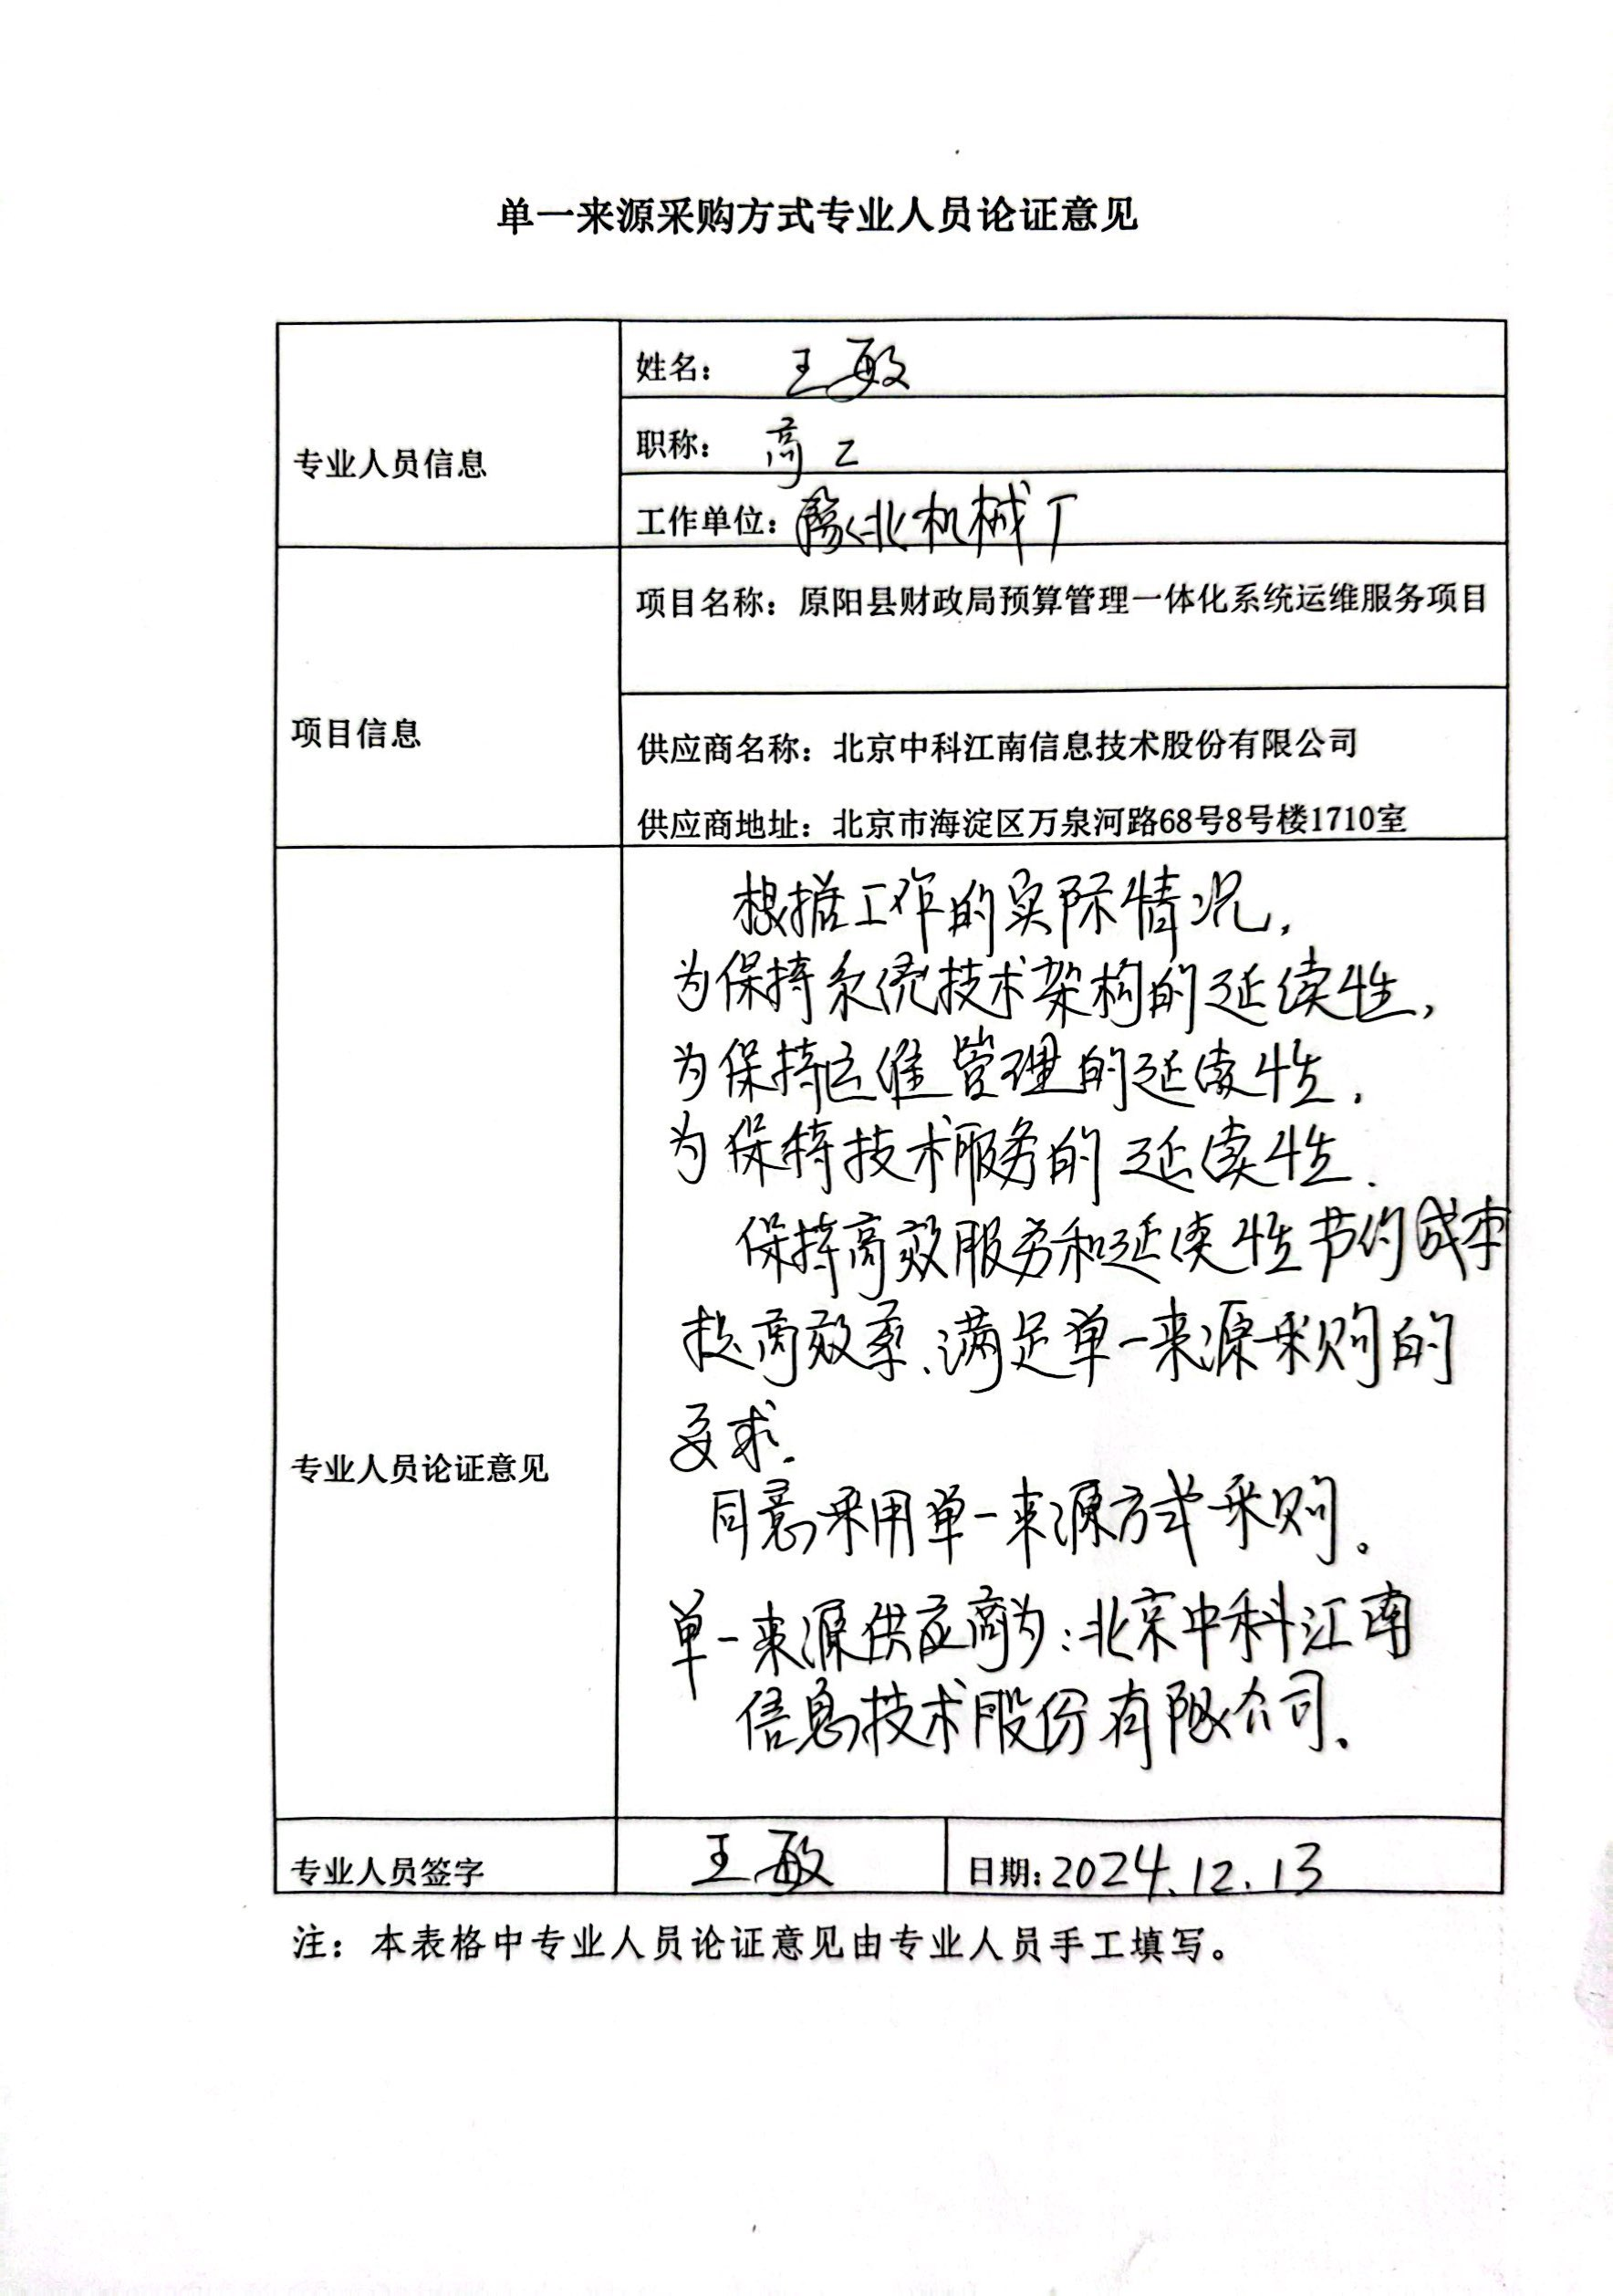 单一来源采购方式专业人员论证意见
专业人员信息
姓名： 王敏
职称： 高工
工作单位：豫北机械厂
项目信息
项目名称：原阳县财政局预算管理一体化系统运维服务项目
供应商名称：北京中科江南信息技术股份有限公司
供应商地址：北京市海淀区万泉河路68号8号楼1710室
专业人员论证意见
根据工作的实际情况，
为保持系统技术架构的延续性，
为保持运维管理的延续性，
为保持技术服务的延续性.
保持高效服务和延续性节约成本
提高效率、满足单一来源采购的
要求.
同意采用单一来源方式采购。
单一来源供应商为：北京中科江南
信息技术股份有限公司.
专业人员签字
王敏
日期：2024.12.13
注：本表格中专业人员论证意见由专业人员手工填写。